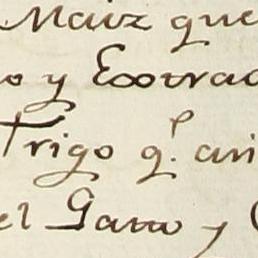 Maiz que
o y Extrac
Trigo q.l ari
el Gasto y